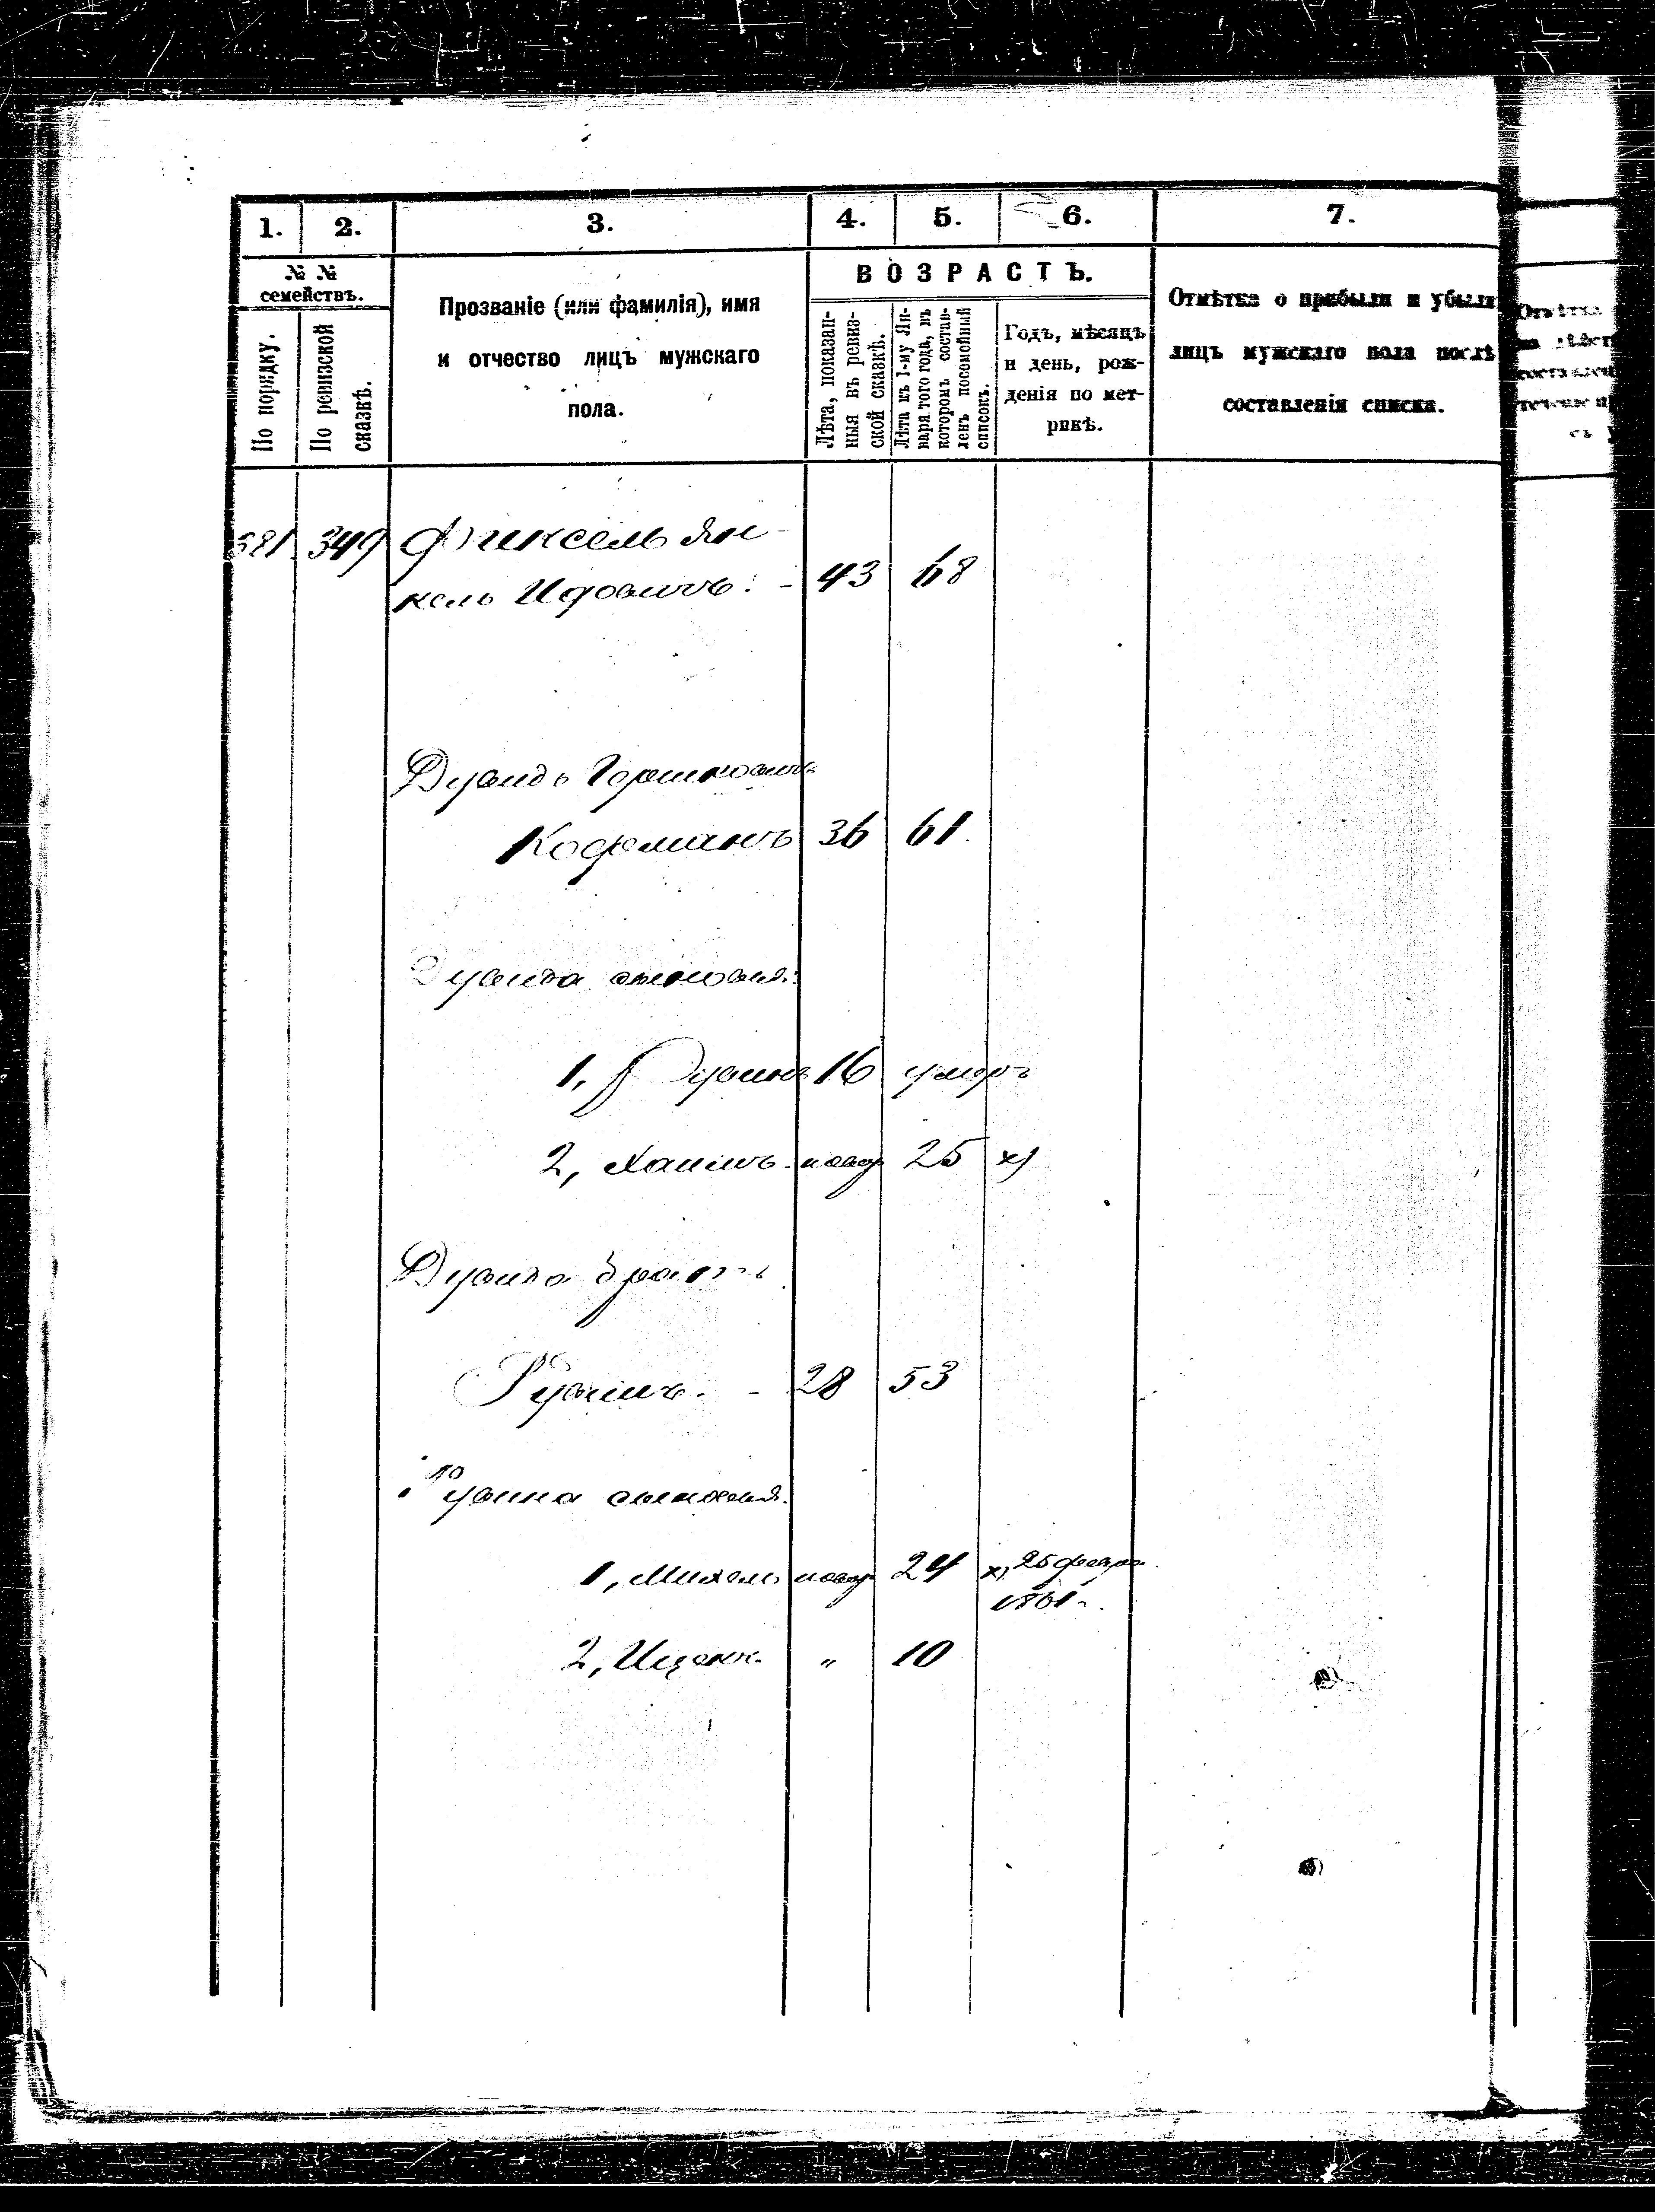 1. 2. 3. 4. 5. 6. 7.
№ №
семействъ.
По порядку.
По ревизской
сказкѣ.
Прозваніе (или фамилія), имя
и отчество лицъ мужскаго
пола.
ВОЗРАСТЪ.
Лѣта, показан-
ныя въ ревиз-
ской сказкѣ.
Лѣта къ 1-му Ян-
варя того года, въ
которомъ состав-
ленъ посемейный
списокъ.
Годъ, мѣсяцъ
и день, рож-
денія по мет-
рикѣ.
Отмѣтка о прибыли и убыли
лицъ мужскаго пола послѣ
составленія списка.
381 349 Фиксель Ян-
кель Идовичъ. - 43 68
Дувидъ Гершковичъ
Кофманъ 36 61.
Дувида сыновья:
1, Рувинъ 16 умеръ
2, Хаимъ - новор 25 х)
Дувида братъ
Рувинъ. - 28 53
Рувина сыновья.
1, Михель новор 24 х) 25 февра.
1861.
2, Ицекъ " 10